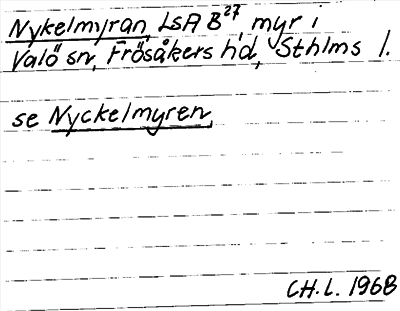 Nykelmyran, LSA B27, myr i
Valö sn, Frösåkers hd, Sthlms l.
se Nyckelmyren,
CH.L. 1968